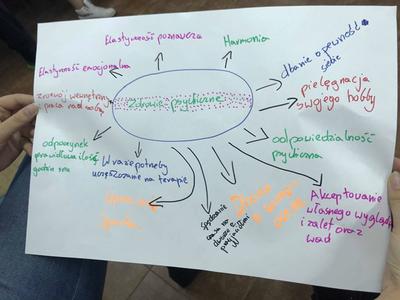 Elastyczność poznawcza
Harmonia
dbanie o pewność
siebie
Elastyczność emocjonalna
pielęgnacja
swojego hobby
rozwój wewnętrzny
i praca nad sobą
Zdrowie psychiczne
odpowiedzialność
psychiczna
odpoczynek
prawidłowa ilość
godzin snu
W razie potrzeby
uczęszczanie na terapie
spędzanie
czasu na
dworze z
przyjaciółmi
Akceptowanie
własnego wyglądu
i zalet oraz
wad